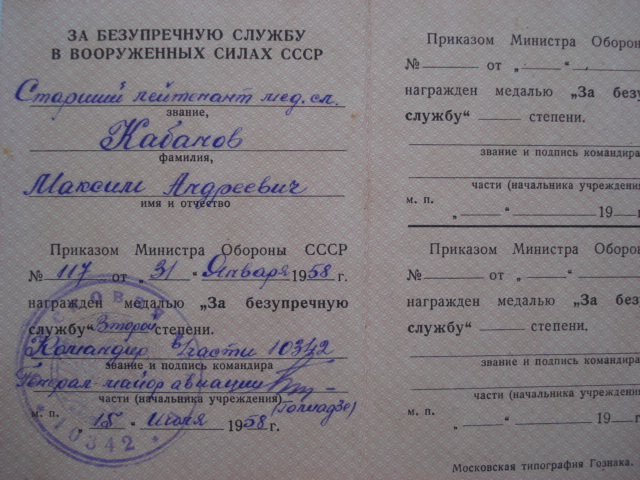 ЗА БЕЗУПРЕЧНУЮ СЛУЖБУ
В ВООРУЖЕННЫХ СИЛАХ СССР
Старший лейтенант мед. сл.
звание,
Кабанов
фамилия,
Максим Андреевич
имя и отчество
Приказом Министра Обороны СССР
№ 117 от „31“ Января 1958 г.
награжден медалью „За безупречную
службу“ Второй степени.
Командир в/части 10342
звание и подпись командира
Генерал-майор авиации
части (начальника учреждения)
м. п. „15“ Июля 1958 г.
10342
Приказом Министра Обороны
№ от „ “
награжден медалью „За безу
службу“ степени.
звание и подпись командира
части (начальника учреждения)
м. п. „ “ 19
Приказом Министра Обороны
№ от „ “
награжден медалью „За без
службу“ степени.
звание и подпись командира
части (начальника учреждения)
м. п. „ “ 19
Московская типография Гознака.